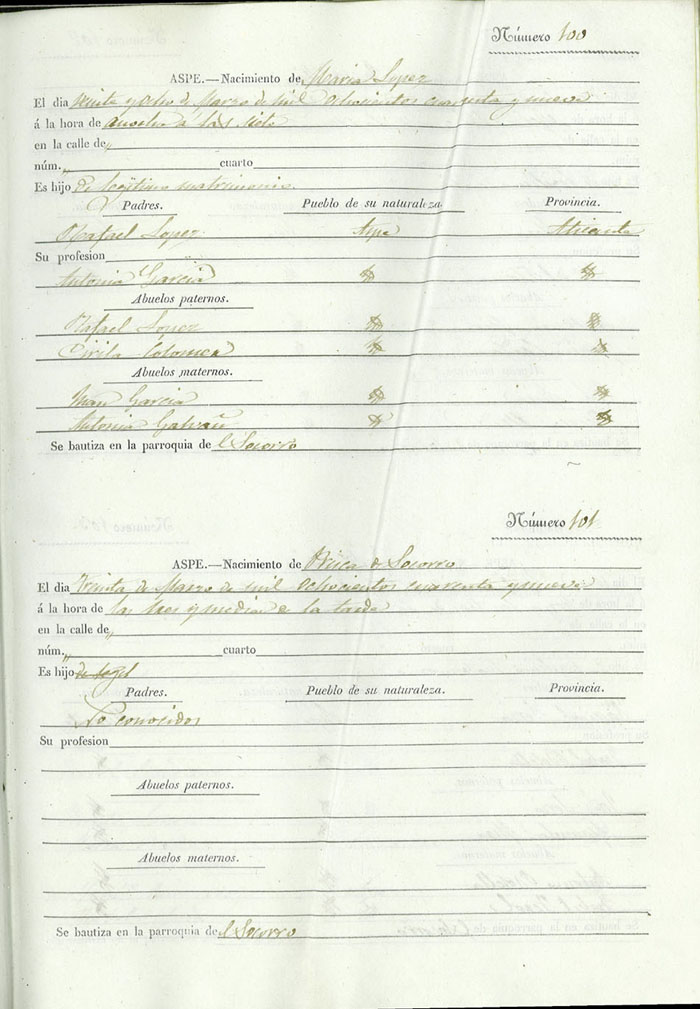 Número 100
ASPE.—Nacimiento de Maria Lopez
El dia veinte y ocho de Marzo de mil ochocientos cuarenta y nueve
á la hora de anoche a las siete
en la calle de „
núm. „ cuarto
Es hijo de legitimo matrimonio.
Padres. Pueblo de su naturaleza. Provincia.
Rafael Lopez Aspe Alicante
Su profesion
Antonia Garcia
Abuelos paternos.
Rafael Lopez
Cirila
Abuelos maternos.
Juan Garcia
Antonia Galvañ
Se bautiza en la parroquia de el Socorro
Número 101
ASPE.—Nacimiento de Socorro
El dia treinta de Marzo de mil ochocientos cuarenta y nueve
á la hora de las tres y media de la tarde
en la calle de „
núm. „ cuarto
Es hijo
Padres. Pueblo de su naturaleza. Provincia.
No conocidos
Su profesion
Abuelos paternos.
Abuelos maternos.
Se bautiza en la parroquia de el Socorro